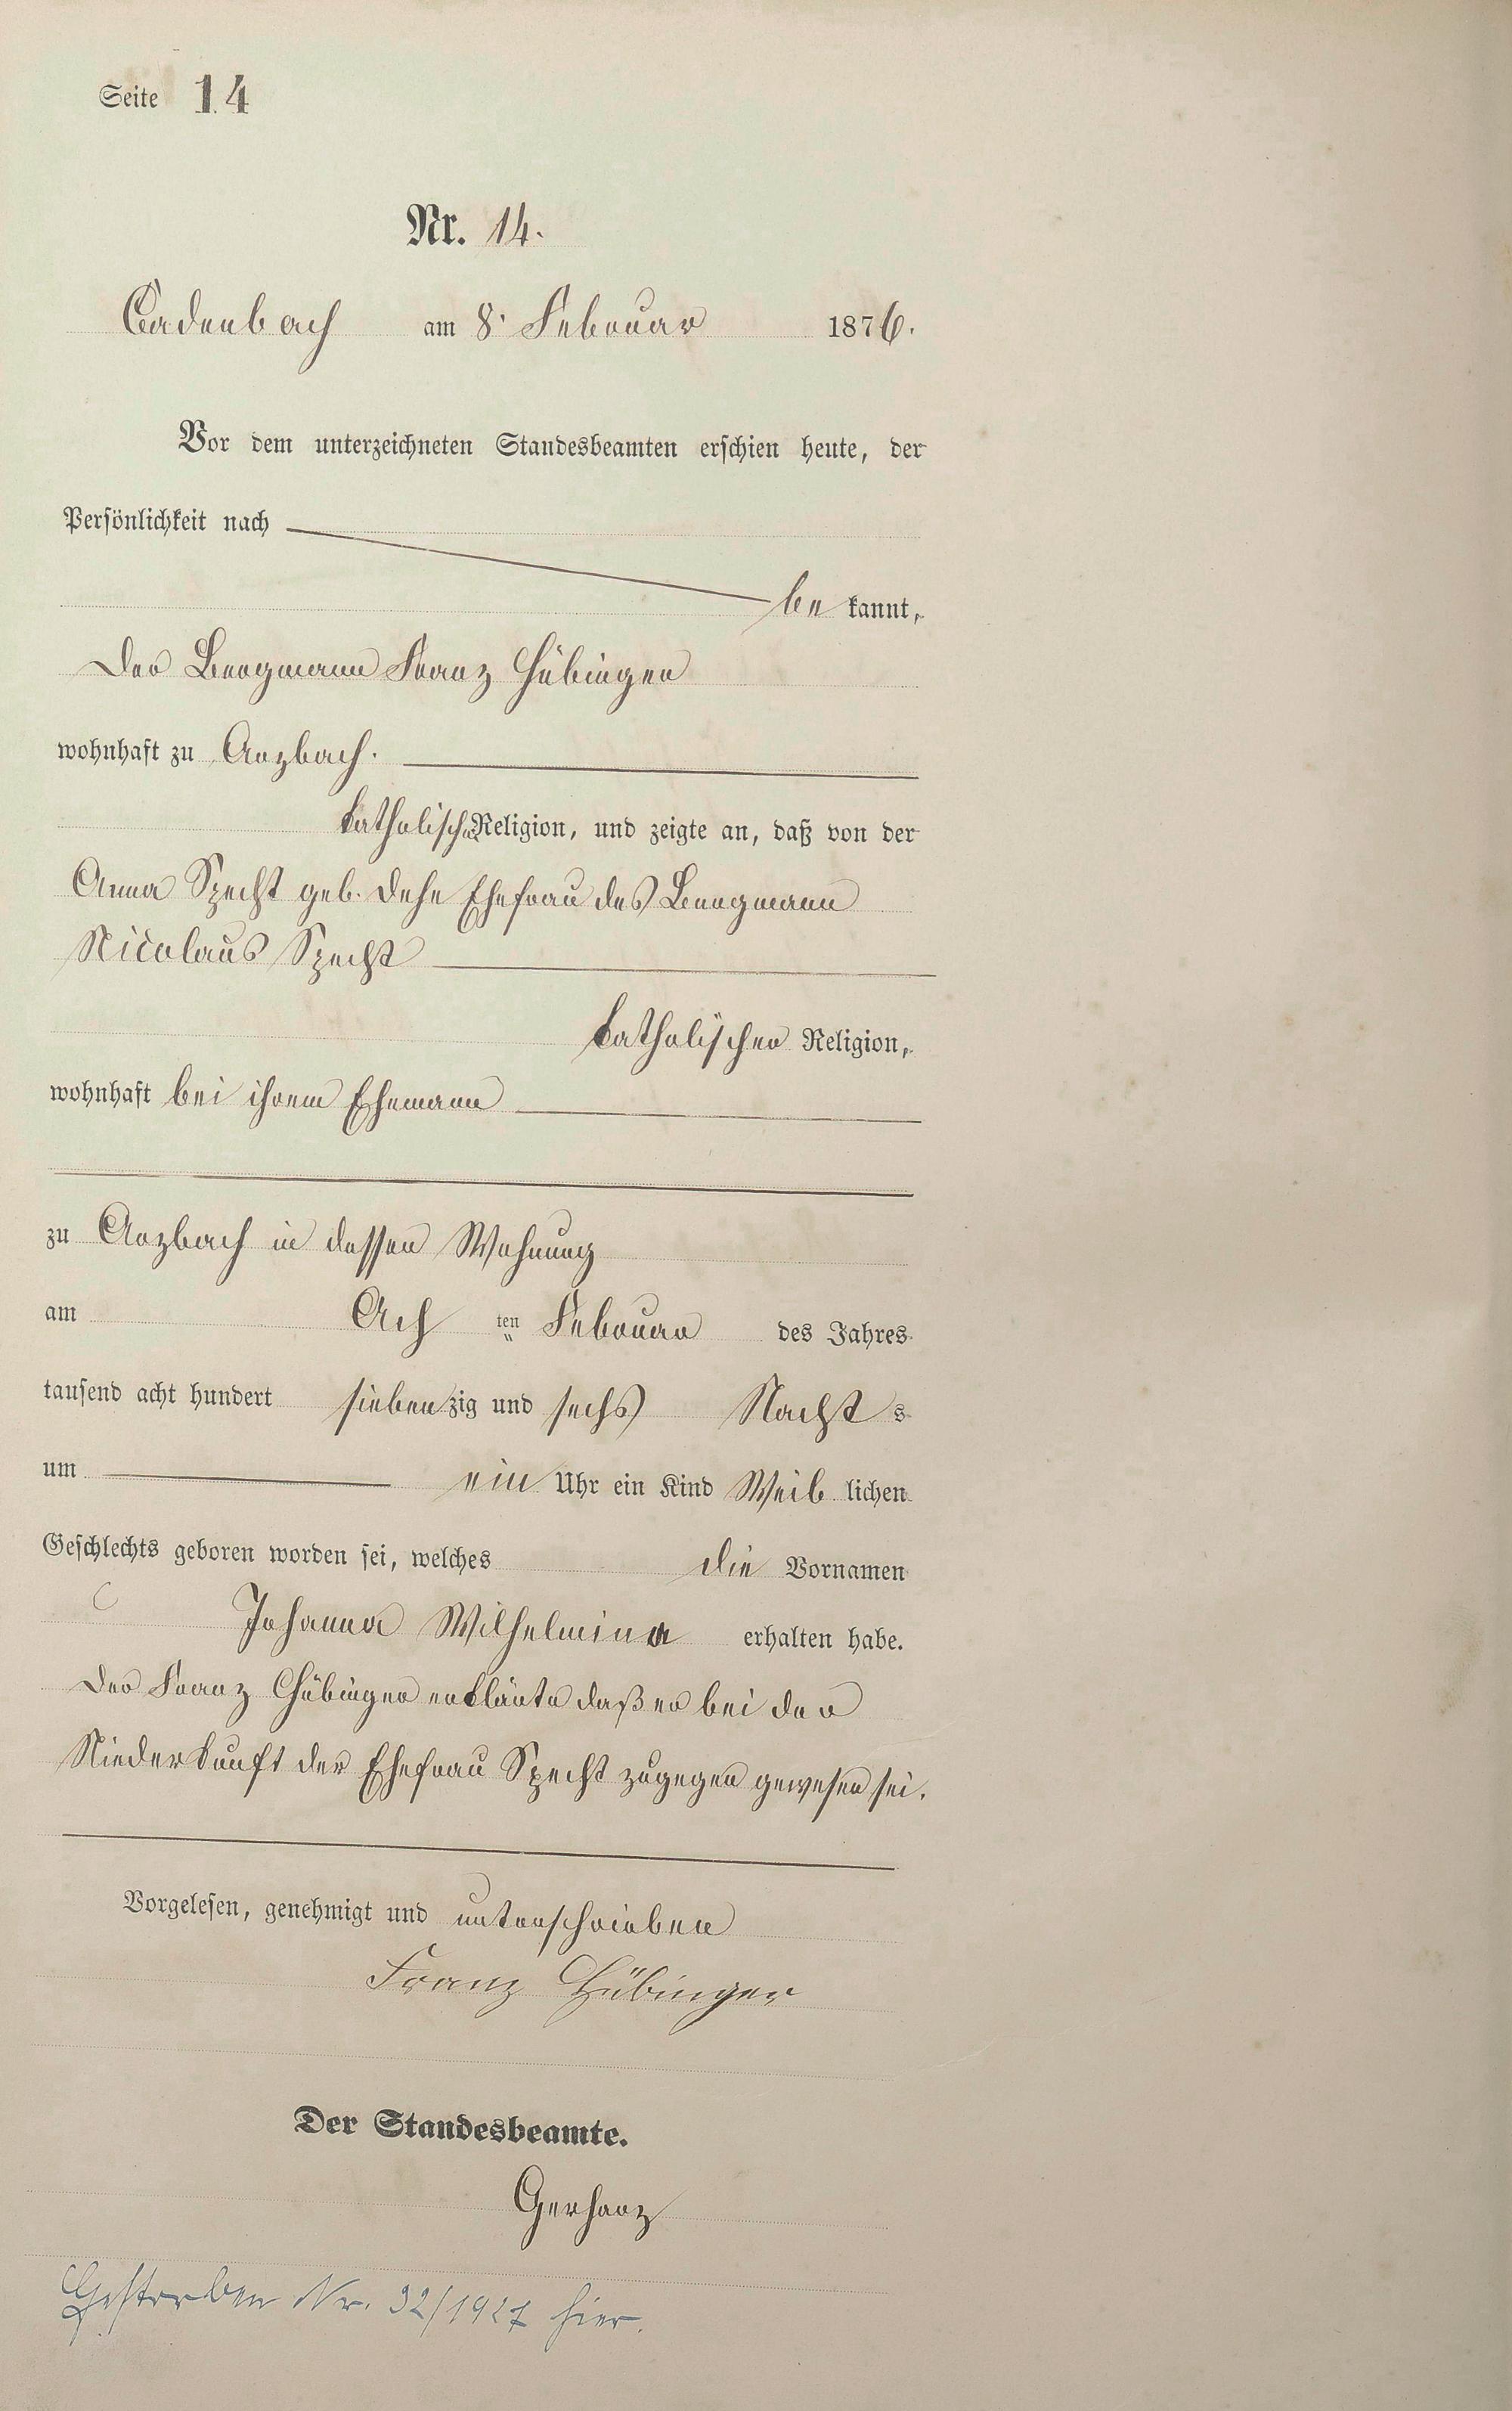 Seite 14
Nr. 14.
Cadenbach am 8. Februar 1876.
Vor dem unterzeichneten Standesbeamten erschien heute, der
Persönlichkeit nach
be kannt,
Der Bergmann Franz Hübinger
wohnhaft zu Arzbach.
katholischer Religion, und zeigte an, daß von der
Anna Specht geb. Dehe Ehefrau des Bergmann
Nicolaus Specht
katholischer Religion,
wohnhaft bei ihrem Ehemann
zu Arzbach in dessen Wohnung
am Ach ten Februar des Jahres
tausend acht hundert siebenzig und sechs Nacht s
um ein Uhr ein Kind Weib lichen
Geschlechts geboren worden sei, welches die Vornamen
Johanna Wilhelmina erhalten habe.
Der Franz Hübinger erklärte daß er bei der
Niederkunft der Ehefrau Specht zugegen gewesen sei.
Vorgelesen, genehmigt und unterschrieben
Franz Hübinger
Der Standesbeamte.
Gerharz
Gestorben Nr. 32/1927 hier.